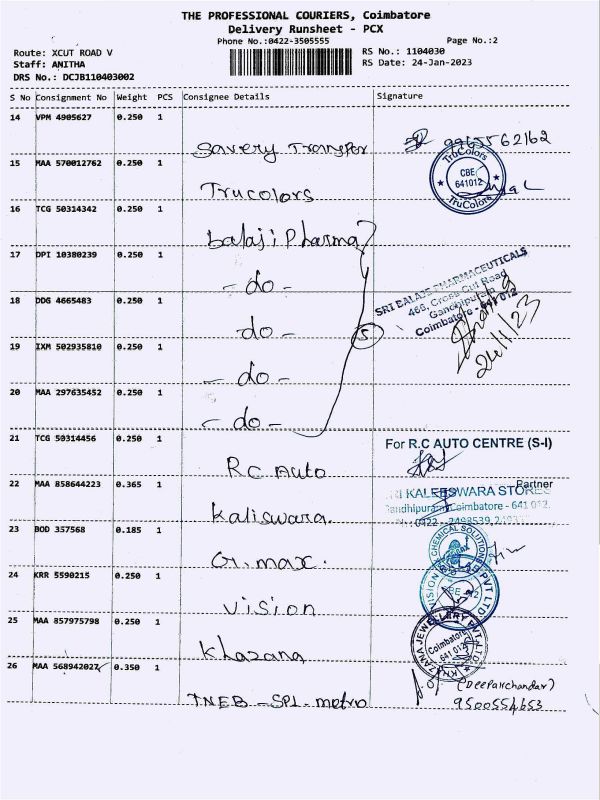 THE PROFESSIONAL COURIERS, Coimbatore
Delivery Runsheet - PCX
Phone No.:0422-3505555
Page No.:2
Route: XCUT ROAD V
RS No.: 1104030
Staff: ANITHA
RS Date: 24-Jan-2023
DRS No.: DCJB110403002
S No Consignment No Weight PCS Consignee Details Signature
14 VPM 4905627 0.250 1
Savery Transfor
9965562162
15 MAA 570012762 0.250 1
Trucolors
TruColors
CBE
641012
TruColors
16 TCG 50314342 0.250 1
balaji Pharma
17 DPI 10380239 0.250 1
- do -
SRI BALAJI PHARMACEUTICALS
466, Cross Cut Road
Gandhipuram
Coimbatore - 641 012
18 DDG 4665483 0.250 1
- do -
5
24/1/23
19 IXM 502935810 0.250 1
- do -
20 MAA 297635452 0.250 1
- do -
21 TCG 50314456 0.250 1
RC Auto
For R.C AUTO CENTRE (S-I)
Partner
22 MAA 858644223 0.365 1
Kaliswara.
SRI KALEESWARA STORES
Gandhipuram, Coimbatore - 641 012.
0422 - 2498539,
23 BOD 357568 0.185 1
G.max.
CHEMICAL SOLUTIONS
24 KRR 5590215 0.250 1
Vision
VISION LAB PVT LTD
25 MAA 857975798 0.250 1
Khazana
KHAZANA JEWELLERY PVT LTD
Coimbatore
641 012
26 MAA 568942027 0.350 1
TNEB - SPL. metro
(Deepakchandar)
9500554653